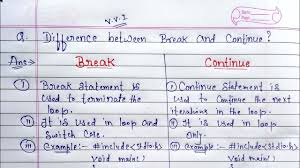 v.v.I
Q. Difference between Break and Continue?
Ans→ Break Continue
i) Break Statement is
used to terminate the
loop.
i) Continue Statement is
used to Continue the next
iterations in the loop.
ii) It is used in loop and
Switch Case.
ii) It is used in loop
only.
iii) Example:- #include<stdio.h>
void main()
iii) Example:- #include<stdio.h>
void main()